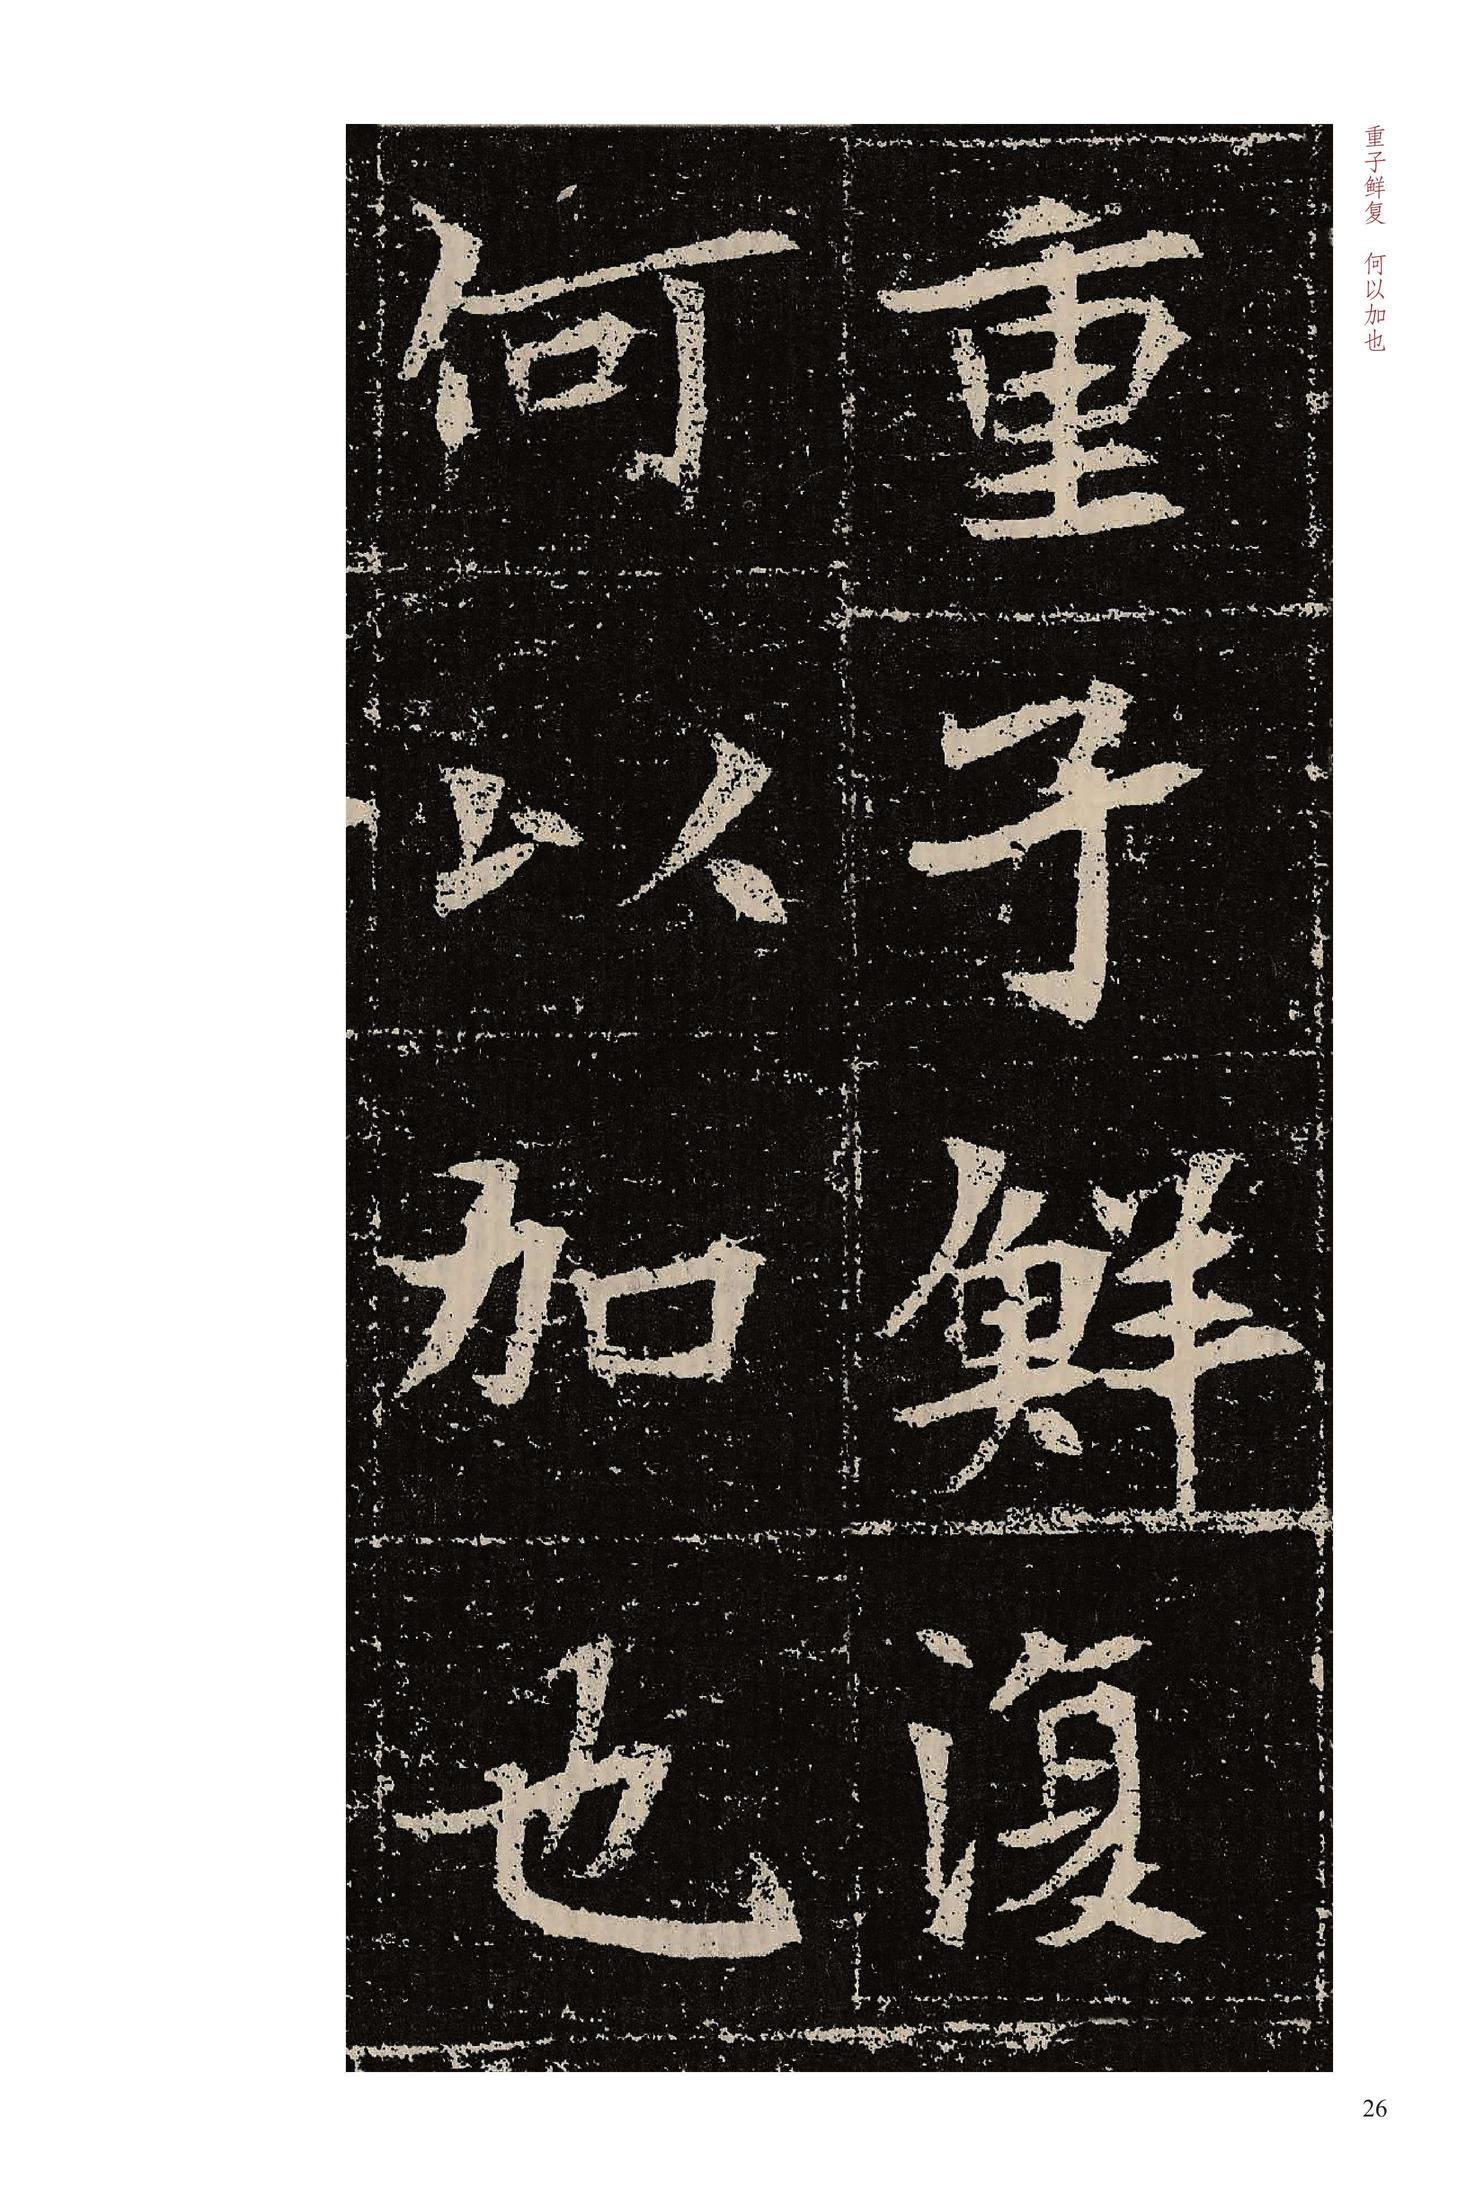 重子鲜复　何以加也
重子鮮復
何以加也
26